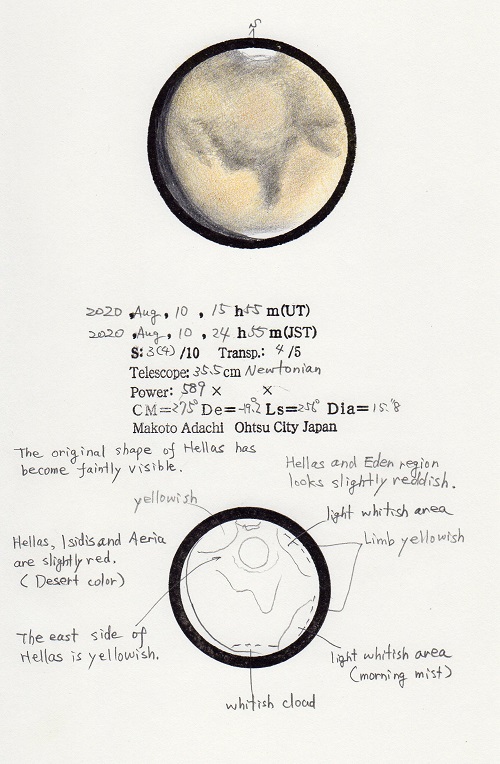 S
2020 , Aug , 10 , 15 h 55 m (UT)
2020 , Aug , 10 , 24 h 55 m (JST)
S: 3(4) /10 Transp.: 4 /5
Telescope: 35.5 cm Newtonian
Power: 589 × ×
CM=275° De=-19.2 Ls=256° Dia=15."8
Makoto Adachi Ohtsu City Japan
The original shape of Hellas has
become faintly visible.
Hellas and Eden region
looks slightly reddish.
yellowish
light whitish area
Limb yellowish
Hellas, Isidis and Aeria
are slightly red.
( Desert color)
The east side of
Hellas is yellowish.
light whitish area
(morning mist)
whitish cloud